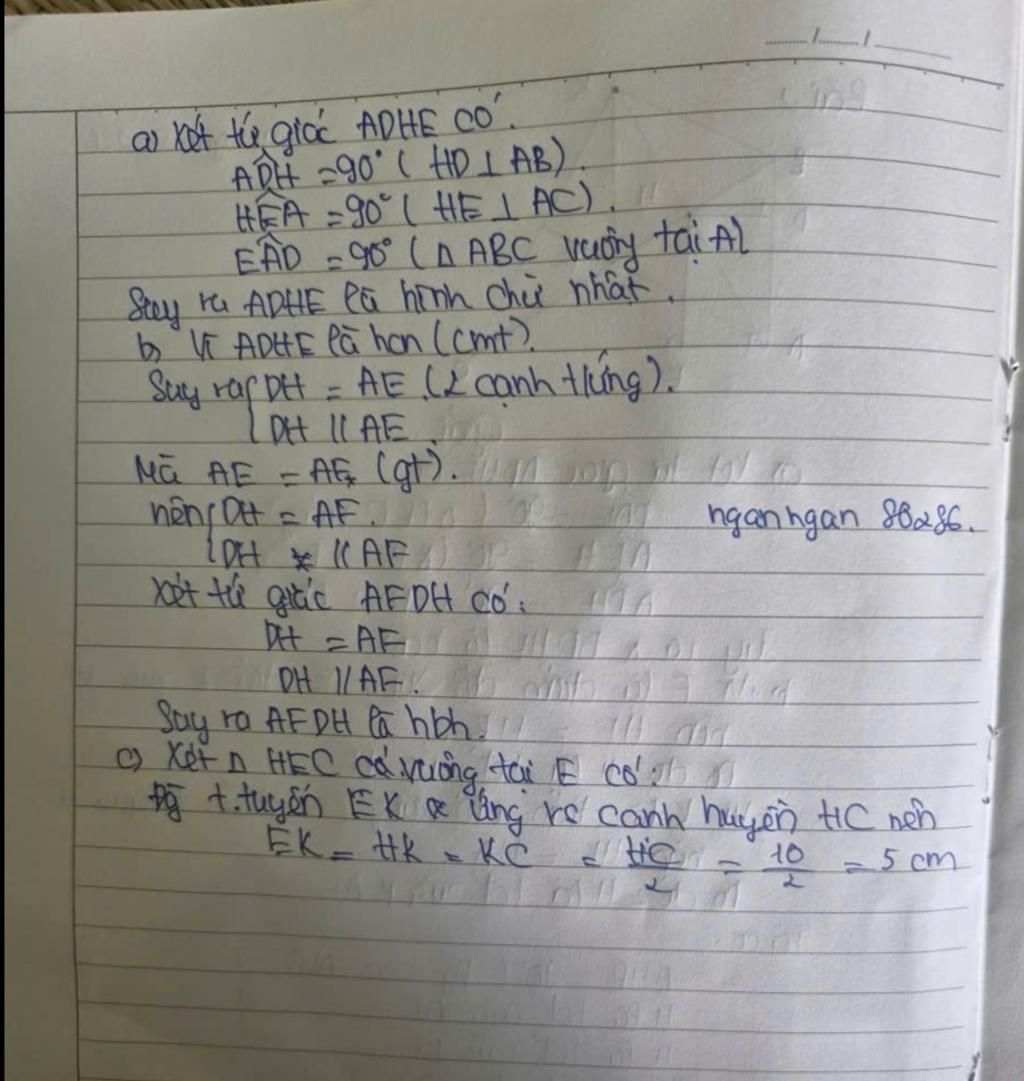 ...../....../..........
a) Xét tứ giác ADHE có:
ADH̑ = 90° ( HD ⊥ AB).
HÊA = 90° ( HE ⊥ AC).
EÂD = 90° (Δ ABC vuông tại A)
Suy ra ADHE là hình chữ nhât.
b) Vì ADHE là hcn (cmt).
Suy ra { DH = AE (2 cạnh t/ứng).
DH // AE.
Mà AE = AF (gt).
nên { DH = AF.
DH // AF
nganngan 86286.
Xét tứ giác AFDH có:
DH = AF
DH // AF.
Suy ra AFDH là hbh.
c) Xét Δ HEC vuông tại E có:
t.tuyến EK ứng vs canh huyền HC nên
EK = HK = KC = HC/2 = 10/2 = 5 cm